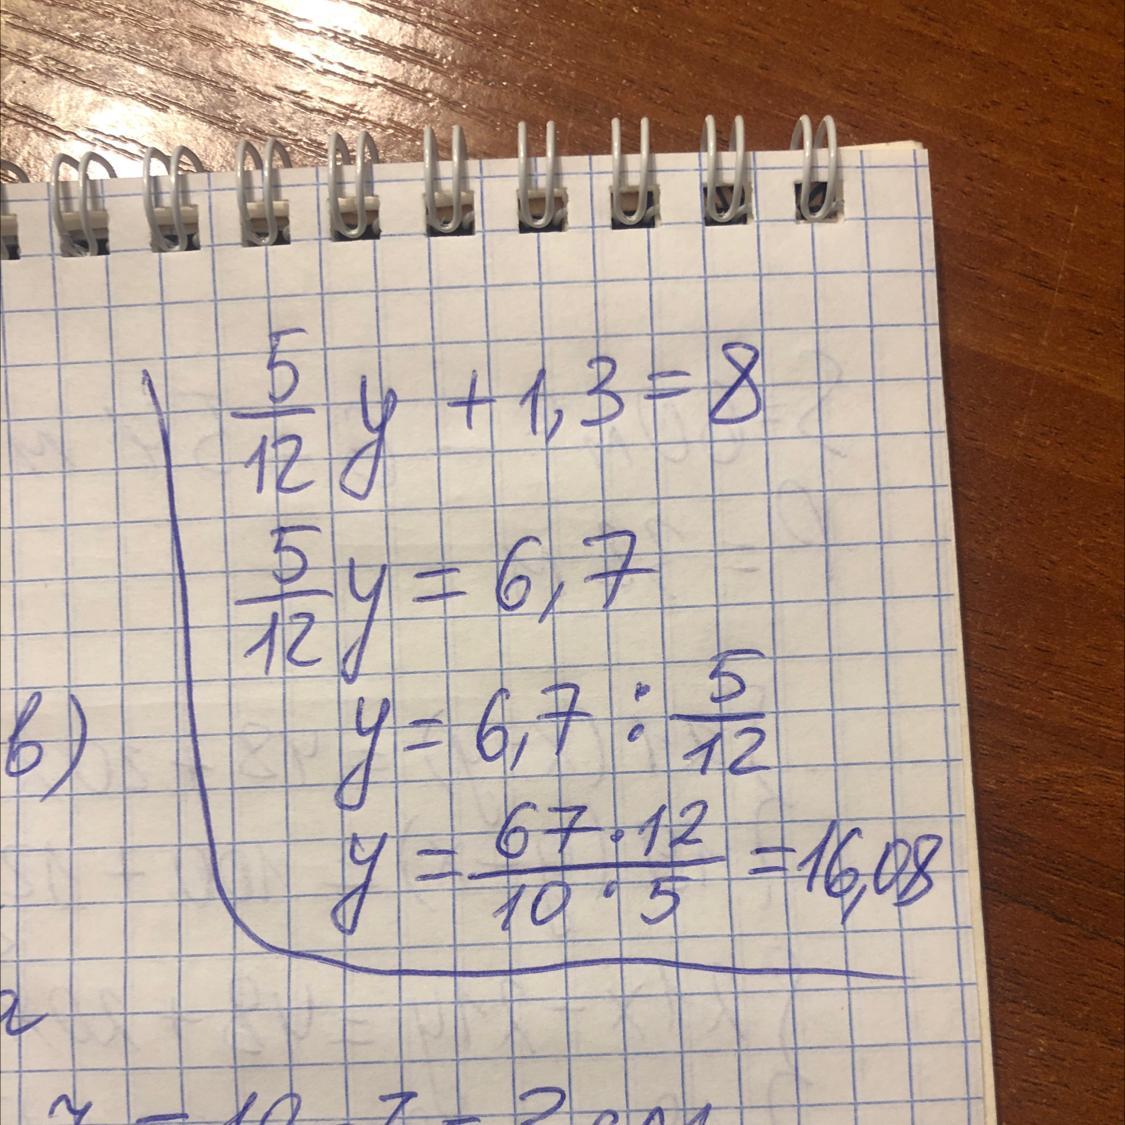 5/12 y + 1,3 = 8
5/12 y = 6,7
y = 6,7 : 5/12
в)
y = 67·12/10·5 = 16,08